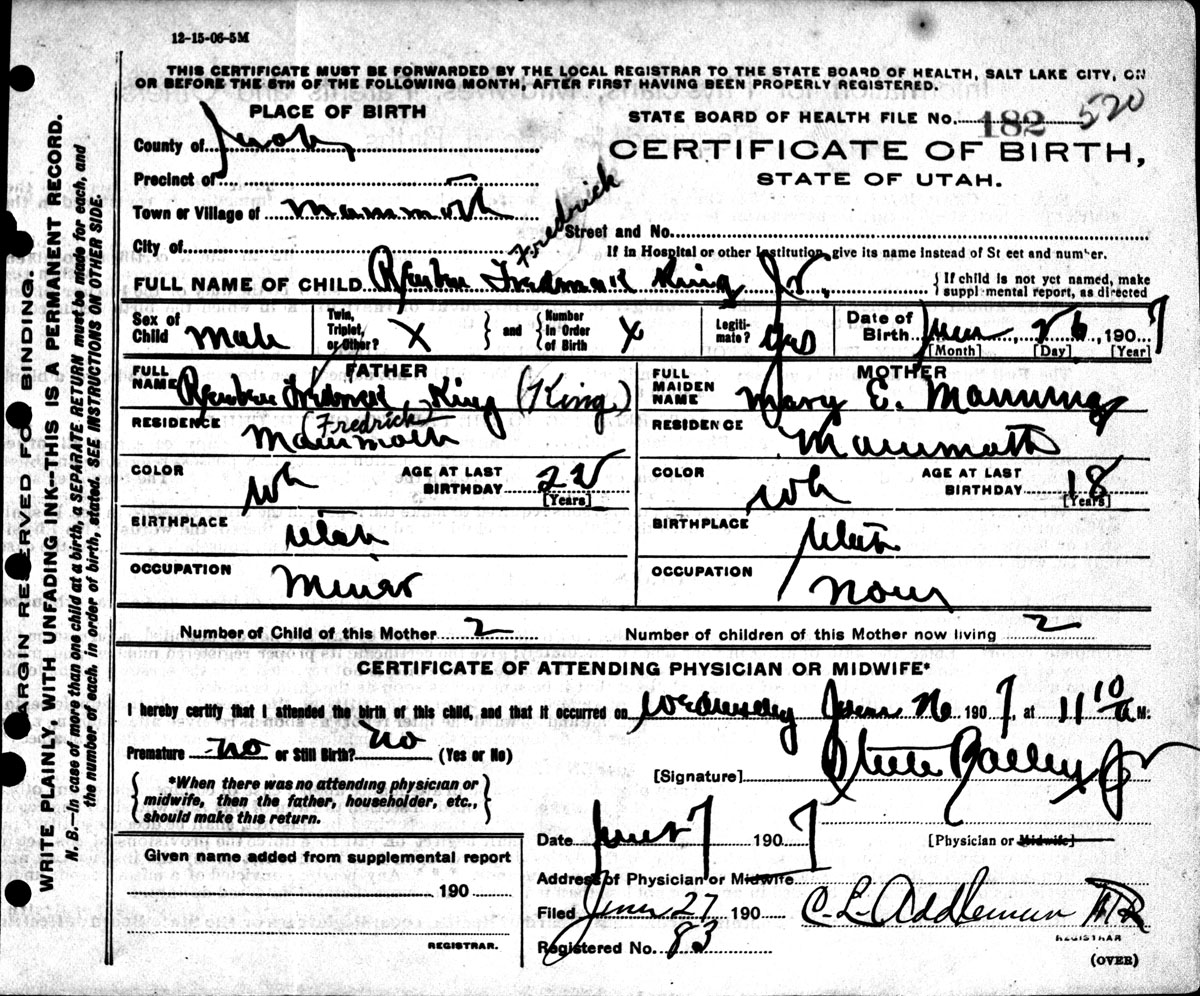 12-15-06-5M
THIS CERTIFICATE MUST BE FORWARDED BY THE LOCAL REGISTRAR TO THE STATE BOARD OF HEALTH, SALT LAKE CITY, ON
OR BEFORE THE 5TH OF THE FOLLOWING MONTH, AFTER FIRST HAVING BEEN PROPERLY REGISTERED.
PLACE OF BIRTH
STATE BOARD OF HEALTH FILE No. 182 520
County of Juab
CERTIFICATE OF BIRTH,
STATE OF UTAH.
Precinct of
Town or Village of Mammoth
Fredrick
Street and No.
City of
If in Hospital or other Institution, give its name instead of St eet and number.
FULL NAME OF CHILD Reuben Fredrick King Jr.
{ If child is not yet named, make
supplemental report, as directed
Sex of Child Male
Twin, Triplet, or Other? X } and { Number in Order of Birth X
Legitimate? Yes
Date of Birth June, 26, 1907
[Month] [Day] [Year]
FATHER
FULL NAME Reuben Fredrick King (King)
(Fredrick)
RESIDENCE Mammoth
COLOR Wh
AGE AT LAST BIRTHDAY 22
[Years]
BIRTHPLACE Utah
OCCUPATION Miner
MOTHER
FULL MAIDEN NAME Mary E. Manning
RESIDENCE Mammoth
COLOR Wh
AGE AT LAST BIRTHDAY 18
[Years]
BIRTHPLACE Utah
OCCUPATION None
Number of Child of this Mother 2
Number of children of this Mother now living 2
CERTIFICATE OF ATTENDING PHYSICIAN OR MIDWIFE*
I hereby certify that I attended the birth of this child, and that it occurred on Wednesday June 26 1907, at 11 10/a M.
Premature no or Still Birth? no (Yes or No)
{ *When there was no attending physician or
midwife, then the father, householder, etc.,
should make this return. }
[Signature] Steele Bailey Jr
[Physician or Midwife]
Date June 27 1907
Address of Physician or Midwife
Given name added from supplemental report
190
REGISTRAR.
Filed June 27 190
C. L. Addleman
REGISTRAR
Registered No. 83
(OVER)
MARGIN RESERVED FOR BINDING.
WRITE PLAINLY, WITH UNFADING INK--THIS IS A PERMANENT RECORD.
N. B.--In case of more than one child at a birth, a SEPARATE RETURN must be made for each, and
the number of each, in order of birth, stated. SEE INSTRUCTIONS ON OTHER SIDE.